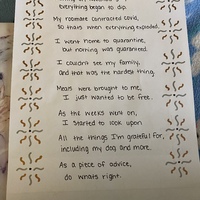 everything began to dip.
My roomate contracted covid,
so thats when everything exploded.
I went home to quarantine,
but nothing was guaranteed.
I couldn't see my family,
and that was the hardest thing.
Meals were brought to me,
I just wanted to be free.
As the weeks went on,
I started to look upon
All the things I'm grateful for,
including my dog and more.
As a piece of advice,
do whats right.